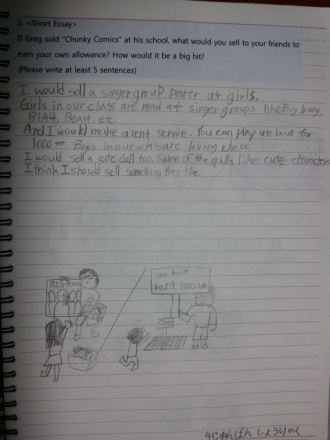 3. <Short Essay>
If Greg sold "Chunky Comics" at his school, what would you sell to your friends to
earn your own allowance? How would it be a big hit?
(Please write at least 5 sentences)
I would sell a singer group poster at girls.
Girls in our class are mad at singer groups like Big bang
B1A4, Beast, etc.
And I would make a rent service. You can play one bout for
1000 Boys in our class are loving chess.
I would sell a cute doll too. Some of the girls like cute characters
I think I should sell something they like.
one bout